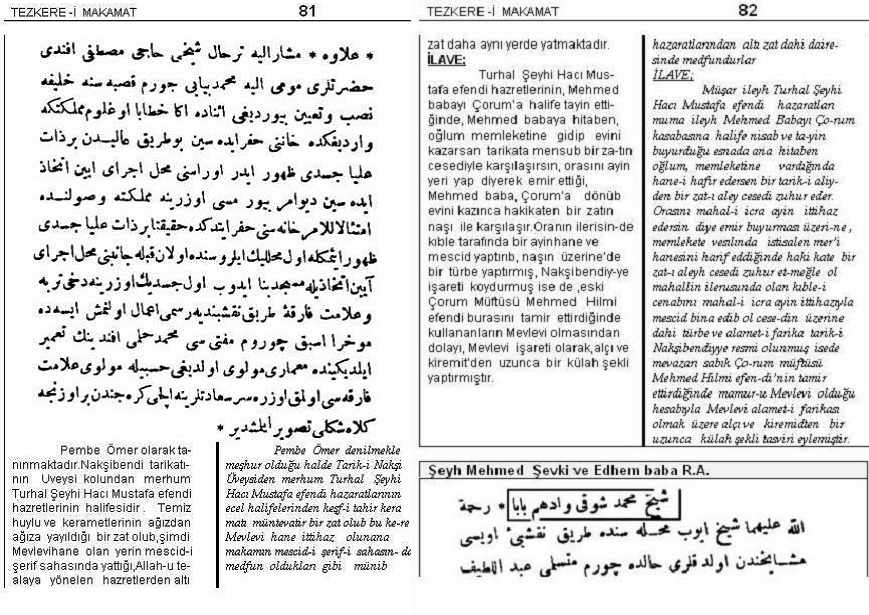 TEZKERE -İ MAKAMAT 81
* علاوه * مشار اليه ترحال شيخى حاجى مصطفى افندى
حضرتلرى مومى اليه محمد بابايى چورم قصبه سنه خليفه
نصب وتعيين بيورديغى اثناده اكا خطابا اوغلوم مملكتكه
وارديغكده خاننى حفر ايده سين بو طريق عاليدن بر ذات
عليا جسدى ظهور ايدر اوراسنى محل اجراى ايين اتخاذ
ايده سين ديو امر بيورمسى اوزرينه مملكته وصولنده
امتثالا للامر خانه سنى حفر ايتدكده حقيقتا بر ذات عليا جسدى
ظهور ايتمكله اول محلليك ايلروسنده اولان قبله جانبنى محل اجراى
آيين اتخاذيله مسجد بنا ايدوب اول جسديك اوزرينه دخى تربه
وعلامت فارقهٔ طريق نقشبنديه رسمى اعمال اولنمش ايسه ده
موخرا اسبق چوروم مفتى سى محمد حلمى افندينك تعمير
ايلديكنده معمارى مولوى اولديغى حسبيله مولوى علامت
فارقه سى اولمق اوزره سر سعادتلرينه آلچى كره جندن بر اوزنجه
كلاه شكلى تصوير ايلمشدير *
Pembe Ömer olarak ta-
nınmaktadır.Nakşibendi tarikatı-
nın Uveysi kolundan merhum
Turhal Şeyhi Hacı Mustafa efendi
hazretlerinin halifesidir . Temiz
huylu ve kerametlerinin ağızdan
ağıza yayıldığı bir zat olub,şimdi
Mevlevihane olan yerin mescid-i
şerif sahasında yattığı,Allah-u te-
alaya yönelen hazretlerden altı
Pembe Ömer denilmekle
meşhur olduğu halde Tarik-i Nakşi
Üveysiden merhum Turhal Şeyhi
Hacı Mustafa efendi hazaratlarının
ecel halifelerinden keşf-i tahir kera
matı müntevatir bir zat olub bu ke-re
Mevlevi hane ittihaz olunana
makamın mescid-i şerif-i sahasın- da
medfun oldukları gibi münib
TEZKERE -İ MAKAMAT 82
zat daha aynı yerde yatmaktadır.
İLAVE:
Turhal Şeyhi Hacı Mus-
tafa efendi hazretlerinin, Mehmed
babayı Çorum'a halife tayin etti-
ğinde, Mehmed babaya hitaben,
oğlum memleketine gidip evini
kazarsan tarikata mensub bir za-tın
cesediyle karşılaşırsın, orasını ayin
yeri yap diyerek emir ettiği,
Mehmed baba, Çorum'a dönüb
evini kazınca hakikaten bir zatın
naşı ile karşılaşır.Oranın ilerisin-de
kıble tarafında bir ayinhane ve
mescid yaptırıb, naşın üzerine'de
bir türbe yaptırmış, Nakşibendiy-ye
işareti koydurmuş ise de ,eski
Çorum Müftüsü Mehmed Hilmi
efendi burasını tamir ettirdiğinde
kullananların Mevlevi olmasından
dolayı, Mevlevi işareti olarak,alçı ve
kiremit'den uzunca bir külah şekli
yaptırmıştır.
hazaratlarından altı zat dahi daire-
sinde medfundurlar
İLAVE;
Müşar ileyh Turhal Şeyhi
Hacı Mustafa efendi hazaratları
muma ileyh Mehmed Babayı Ço-rum
kasabasına halife nisab ve ta-yin
buyurduğu esnada ana hitaben
oğlum, memleketine vardığında
hane-i hafir edersen bir tarik-i aliy-
den bir zat-ı aley cesedi zuhur eder.
Orasını mahal-i icra ayin ittihaz
edersin diye emir buyurması üzeri-ne ,
memlekete vesılında istisalen mer'i
hanesini harif eddiğinde haki kate bir
zat-ı aleyh cesedi zuhur et-meğle ol
mahallin ilerusunda olan kıble-i
cenabını mahal-i icra ayin ittihazıyla
mescid bina edib ol cese-din üzerine
dahi türbe ve alamet-i farika tarik-i
Nakşibendiyye resmi olunmuş isede
mevazarı sabık Ço-rum müftüsü
Mehmed Hilmi efen-di'nin tamir
ettirdiğinde mamur-u Mevlevi olduğu
hesabıyla Mevlevi alamet-i farikası
olmak üzere alçı ve kiremidten bir
uzunca külah şekli tasviri eylemiştir.
Şeyh Mehmed Şevki ve Edhem baba R.A.
شيخ محمد شوقى وادهم بابا * رحمة
الله عليهما شيخ ايوب محله سنده طريق نقشبى اويسى
مشايخندن اولدقلرى حالده چورم متسلمى عبد اللطيف